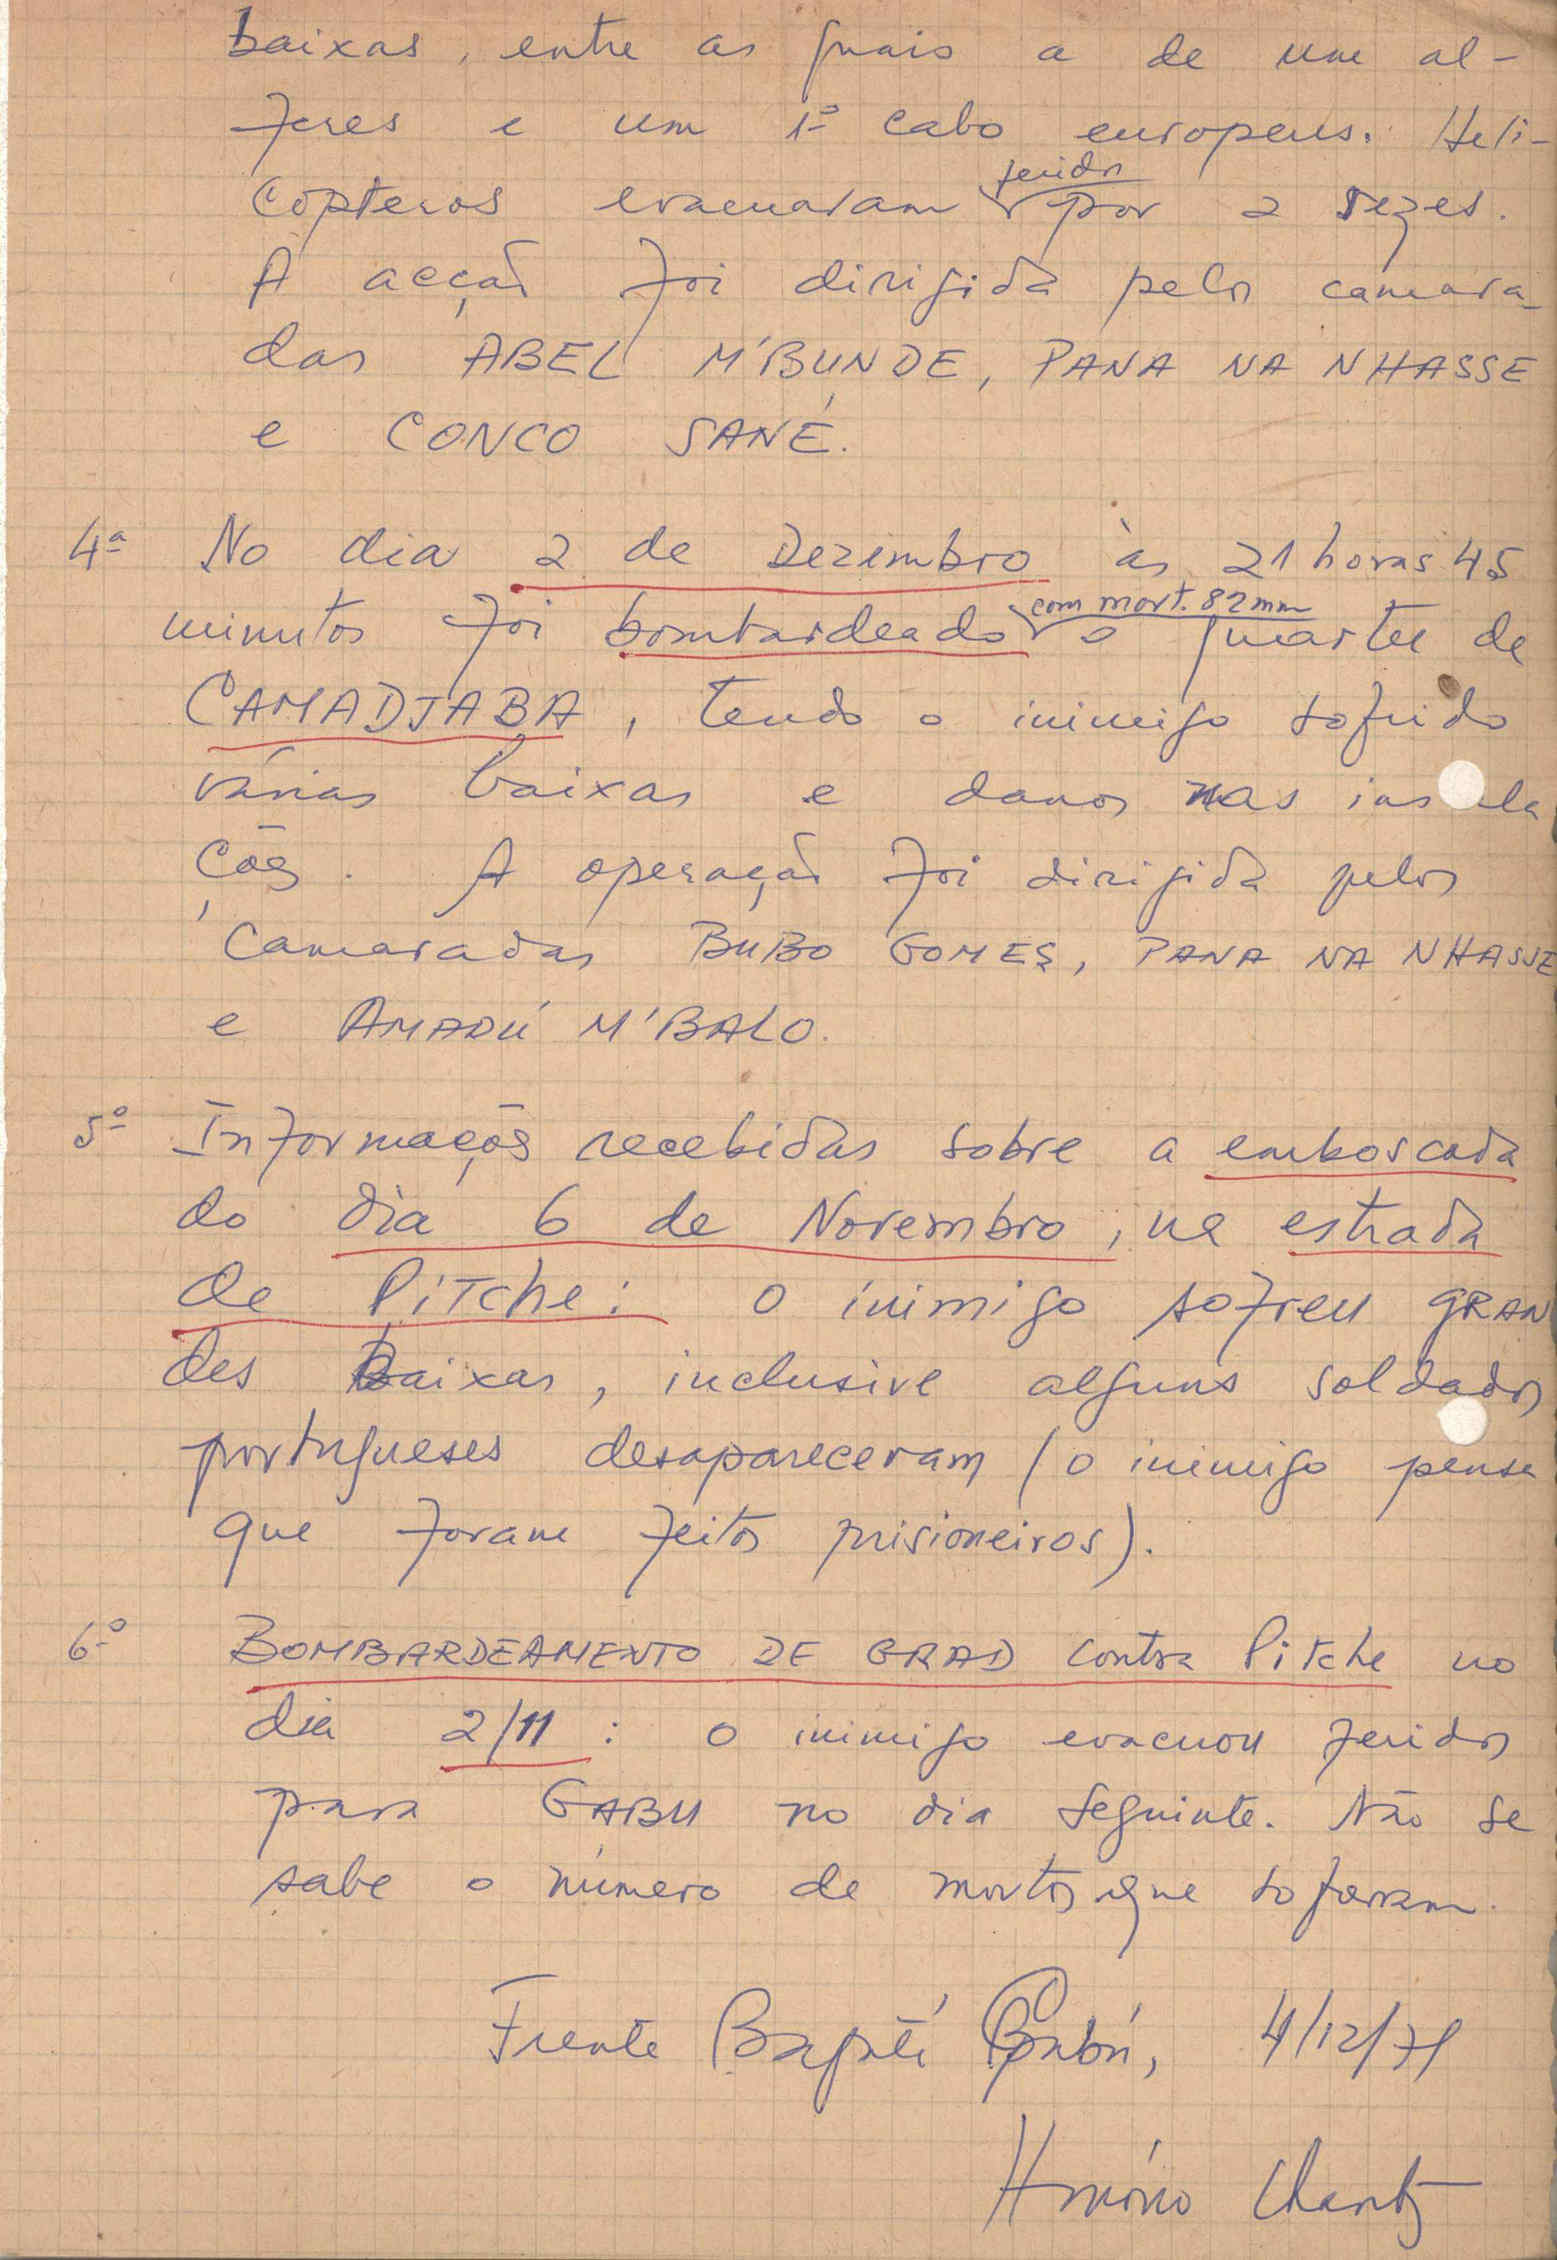 baixas, entre as quais a de um al-
feres e um 1º cabo europeus. Heli-
feridos
copteros evacuaram por 2 vezes.
A acção foi dirigida pelos camara-
das ABEL M'BUNDE, PANA NA NHASSE
e CONCO SANÉ.
4ª No dia 2 de Dezembro às 21 horas 45
com mort. 82 mm
minutos foi bombardeado o quartel de
CAMADJABA, tendo o inimigo sofrido
várias baixas e danos nas ins ala
ções. A operação foi dirigida pelos
camaradas BUBO GOMES, PANA NA NHASSE
e AMADÚ M'BALO.
5º Informações recebidas sobre a emboscada
do dia 6 de Novembro, na estrada
de Pitche: o inimigo sofreu GRAN
des baixas, inclusive alguns soldados
portugueses desapareceram (o inimigo pensa
que foram feitos prisioneiros).
6º BOMBARDEAMENTO DE GRAD contra Pitche no
dia 2/11: o inimigo evacuou feridos
para GABU no dia seguinte. Não se
sabe o número de mortos que sofreram.
Frente Bafatá Gabú, 4/12/71
Honório Chantre